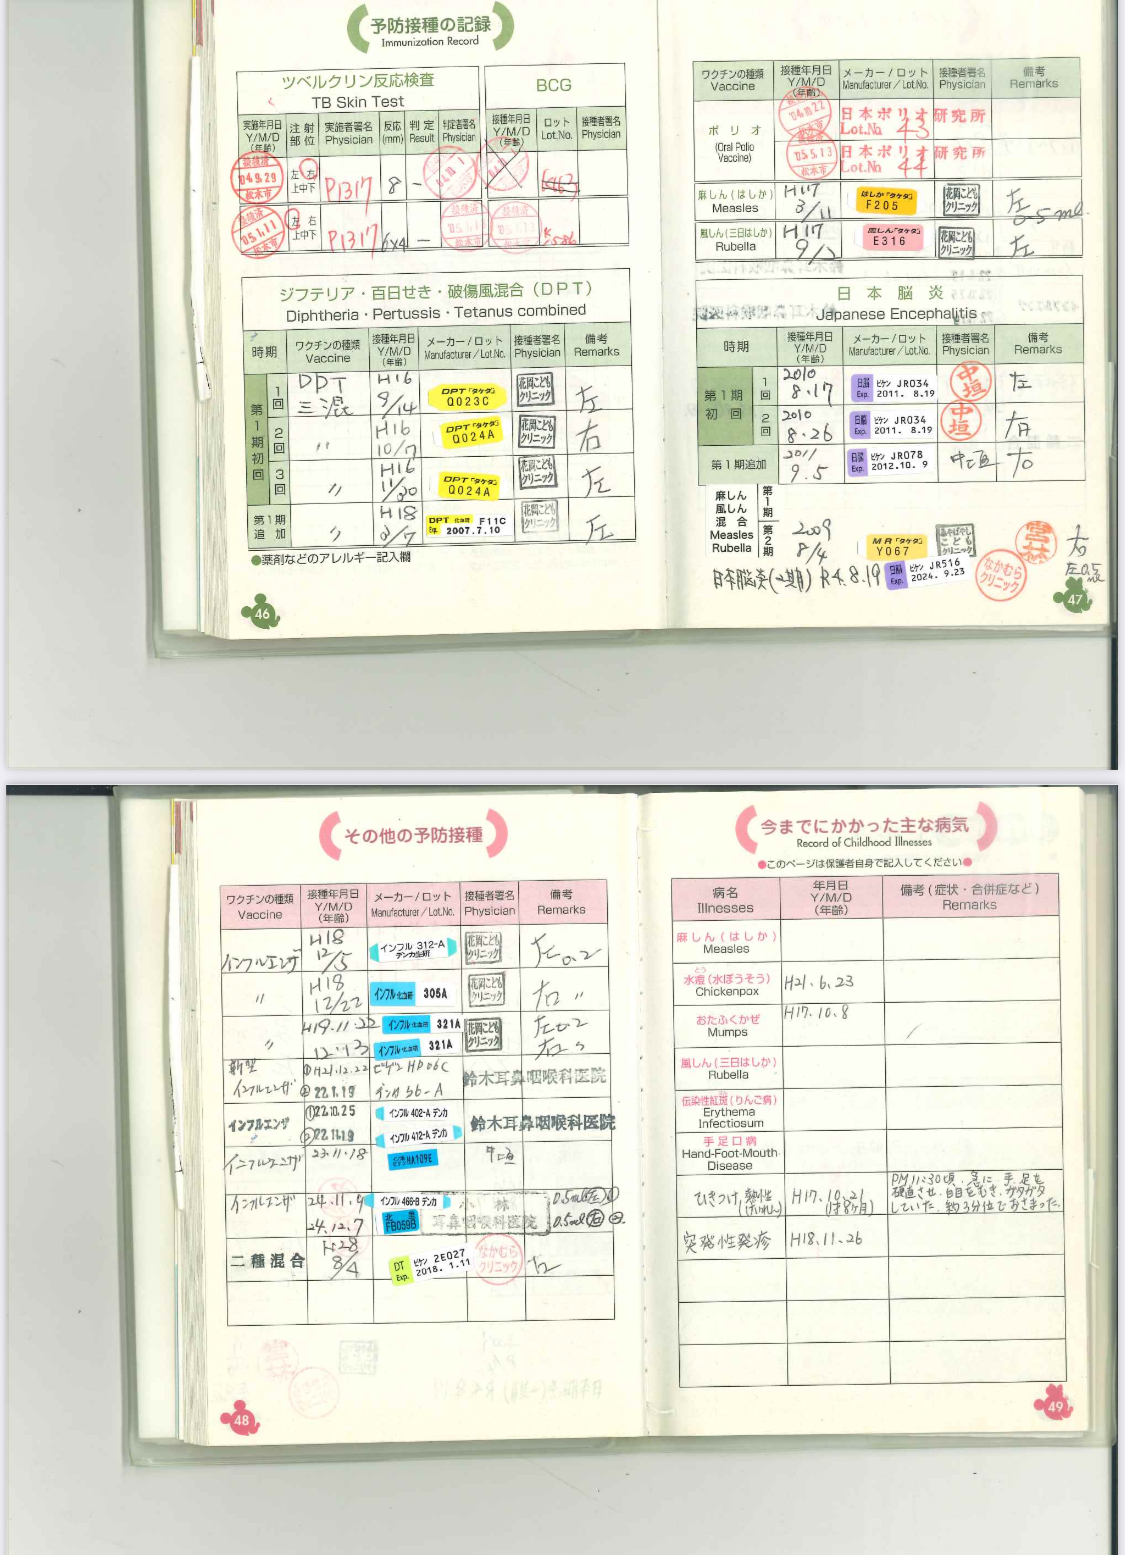 予防接種の記録
Immunization Record
ツベルクリン反応検査
TB Skin Test
BCG
実施年月日 Y/M/D (年齢)
注射部位
実施者署名 Physician
反応 (mm)
判定 Result
判定者署名 Physician
接種年月日 Y/M/D (年齢)
ロット Lot.No.
接種者署名 Physician
接種済 '04.9.29 松本市
左 右 上中下
P1317
8
−
接種済 '05.1.11 松本市
左 右 上中下
P1317
6x4
−
ジフテリア・百日せき・破傷風混合(DPT)
Diphtheria・Pertussis・Tetanus combined
時期
ワクチンの種類 Vaccine
接種年月日 Y/M/D (年齢)
メーカー/ロット Manufacturer/Lot.No.
接種者署名 Physician
備考 Remarks
第1期初回
1回
DPT 三混
H16 9/14
DPT「タケダ」 Q023C
花岡こどもクリニック
左
2回
〃
H16 10/7
DPT「タケダ」 Q024A
花岡こどもクリニック
右
3回
〃
H16 11/30
DPT「タケダ」 Q024A
花岡こどもクリニック
左
第1期追加
〃
H18 3/7
DPT 化血研 F11C Exp. 2007.7.10
花岡こどもクリニック
左
●薬剤などのアレルギー記入欄
46
ワクチンの種類 Vaccine
接種年月日 Y/M/D (年齢)
メーカー/ロット Manufacturer/Lot.No.
接種者署名 Physician
備考 Remarks
ポリオ (Oral Polio Vaccine)
'04.10.22
日本ポリオ研究所 Lot.No 43
'05.5.13
日本ポリオ研究所 Lot.No 44
麻しん(はしか) Measles
H17 3/11
はしか「タケダ」 F205
花岡こどもクリニック
左 0.5ml
風しん(三日はしか) Rubella
H17
風しん「タケダ」 E316
花岡こどもクリニック
左
日本脳炎
Japanese Encephalitis
時期
接種年月日 Y/M/D (年齢)
メーカー/ロット Manufacturer/Lot.No.
接種者署名 Physician
備考 Remarks
第1期初回
1回
2010 8.17
日脳 ビケン JR034 Exp. 2011. 8.19
中垣
左
2回
2010 8.26
日脳 ビケン JR034 Exp. 2011. 8.19
中垣
右
第1期追加
2011 9.5
日脳 ビケン JR078 Exp. 2012.10. 9
中垣
右
麻しん風しん混合 Measles Rubella
第1期
第2期
2009 8/4
MR「タケダ」 Y067
こどもクリニック
右
日本脳炎(2期) R4.8.19
日脳 ビケン JR516 Exp. 2024. 9.23
なかむらクリニック
左0.5ml
47
その他の予防接種
ワクチンの種類 Vaccine
接種年月日 Y/M/D (年齢)
メーカー/ロット Manufacturer/Lot.No.
接種者署名 Physician
備考 Remarks
インフルエンザ
H18 12/5
インフル 312-A デンカ生研
花岡こどもクリニック
左0.2
〃
H18 12/22
インフル 化血研 305A
花岡こどもクリニック
右 〃
〃
H19.11.22
インフル 化血研 321A
花岡こどもクリニック
左0.2
12.13
インフル 化血研 321A
右
新型インフルエンザ
①H21.12.22
ビケン HP06C
鈴木耳鼻咽喉科医院
②22.1.19
デンカ S6-A
インフルエンザ
①22.10.25
インフル 402-A デンカ
鈴木耳鼻咽喉科医院
②22.11.19
インフル 412-A デンカ
インフルエンザ
23.11.18
HA109E
中垣
インフルエンザ
24.11.9
インフル 466-B デンカ
小林耳鼻咽喉科医院
0.5ml 左 ①
24.12.7
北研 FB059B
0.5ml 右 ②
二種混合
H28 8/4
DT ビケン 2E027 Exp. 2018.1.11
なかむらクリニック
左
48
今までにかかった主な病気
Record of Childhood Illnesses
●このページは保護者自身で記入してください●
病名 Illnesses
年月日 Y/M/D (年齢)
備考(症状・合併症など) Remarks
麻しん(はしか) Measles
水痘(水ぼうそう) Chickenpox
H21.6.23
おたふくかぜ Mumps
H17.10.8
風しん(三日はしか) Rubella
伝染性紅斑(りんご病) Erythema Infectiosum
手足口病 Hand-Foot-Mouth Disease
ひきつけ、熱性(けいれん)
H17.10.21 (1才8ヶ月)
PM11:30頃、急に手足を硬直させ、白目をむき、ガタガタしていた。約3分位でおさまった。
突発性発疹
H18.11.26
49